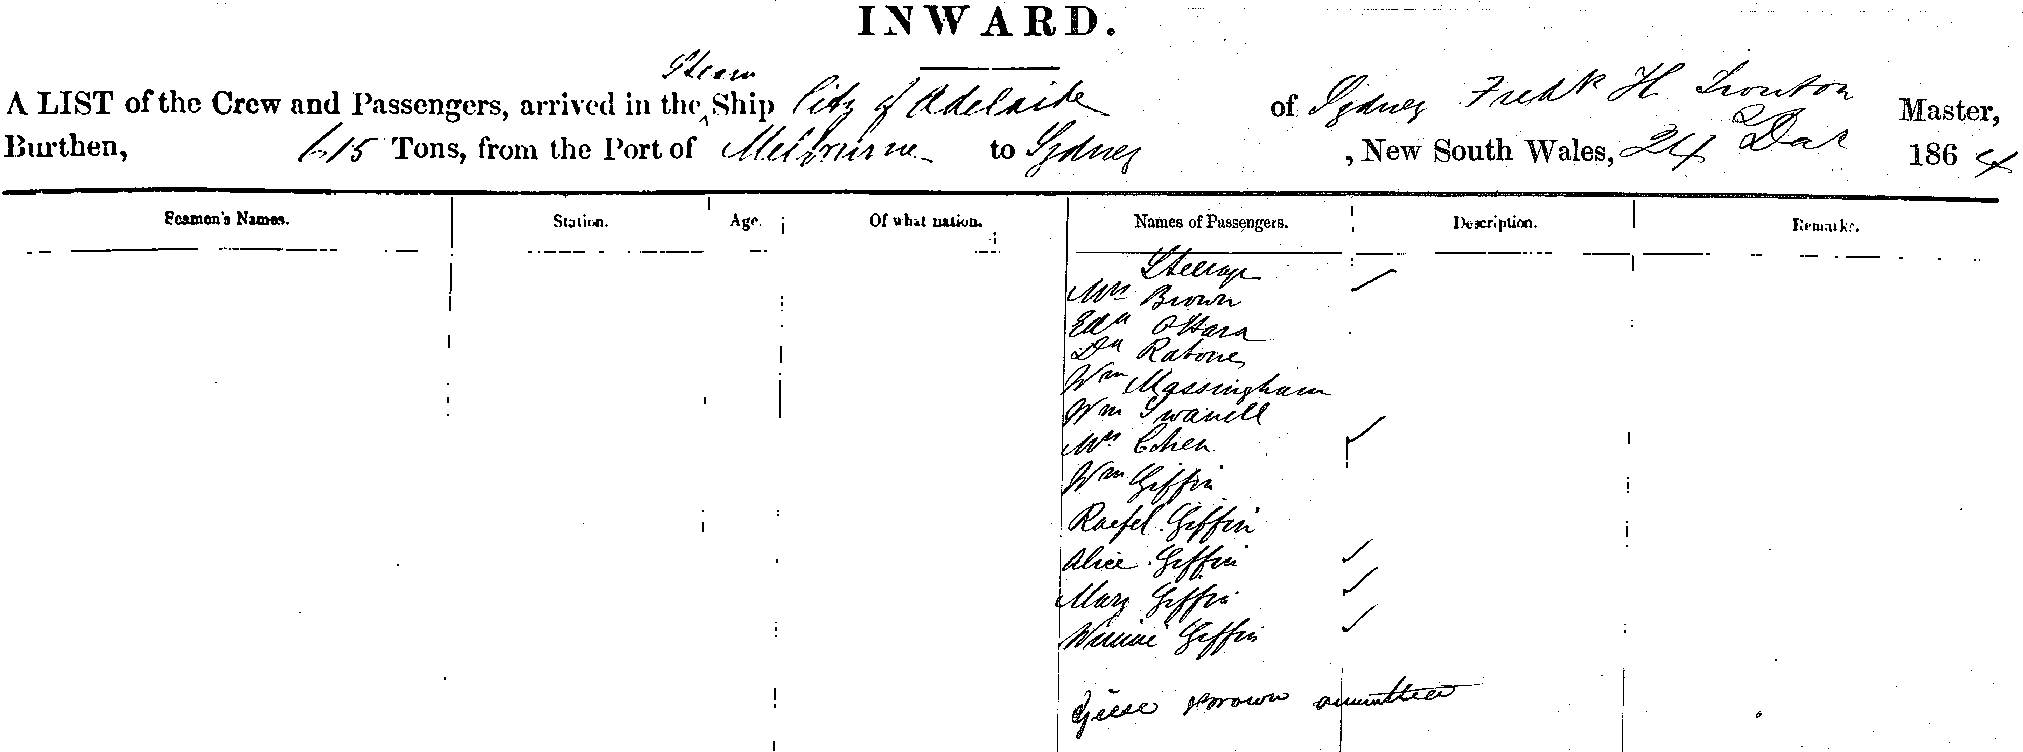 INWARD.
A LIST of the Crew and Passengers, arrived in the Steam Ship City of Adelaide of Sydney Fredk H Trouton Master,
Burthen, 615 Tons, from the Port of Melbourne to Sydney, New South Wales, 24 Dec 1864
Seamen's Names. Station. Age. Of what nation. Names of Passengers. Description. Remarks.
Steerage
Mrs Brown ✓
Edd OHara
Dd
Wm Massingham
Wm Swanell
Mrs Cohen ✓
Wm Giffin
Giffin
Alice Giffin ✓
Mary Giffin ✓
Winnie Giffin ✓
Brown